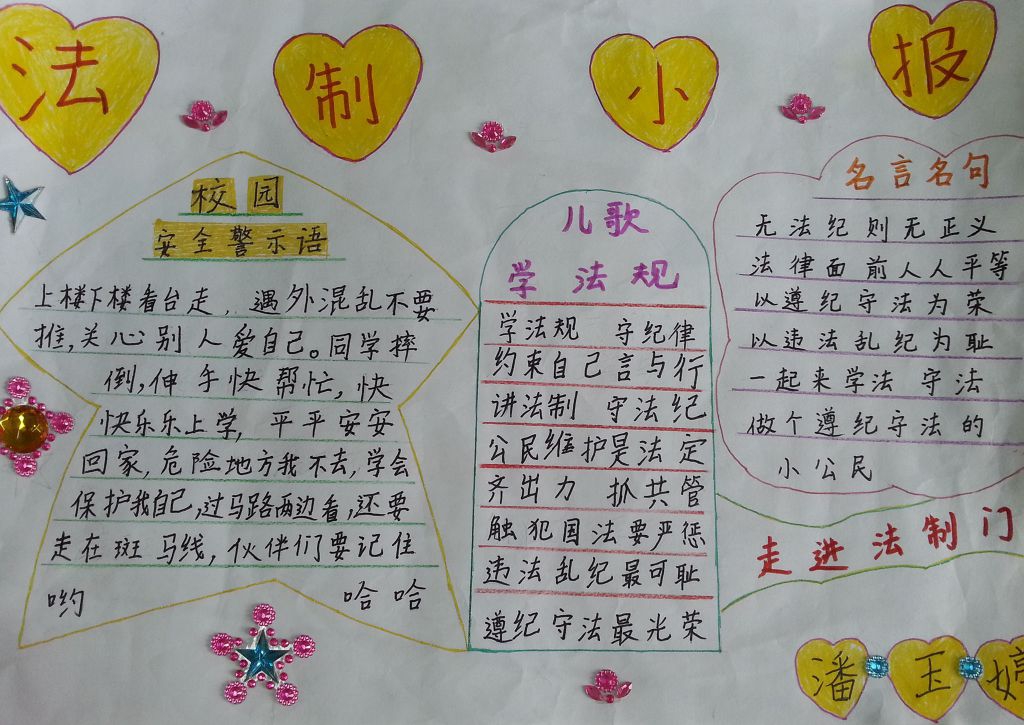 法制小报
校园
安全警示语
上楼下楼看台走, 遇外混乱不要
推,关心别人爱自己。同学摔
倒,伸手快帮忙,快
快乐乐上学,平平安安
回家,危险地方我不去,学会
保护我自己,过马路两边看,还要
走在斑马线,伙伴们要记住
哟 哈哈
儿歌
学法规
学法规 守纪律
约束自己言与行
讲法制 守法纪
公民维护是法定
齐出力 抓共管
触犯国法要严惩
违法乱纪最可耻
遵纪守法最光荣
名言名句
无法纪则无正义
法律面前人人平等
以遵纪守法为荣
以违法乱纪为耻
一起来学法 守法
做个遵纪守法的
小公民
走进法制门
潘玉婷